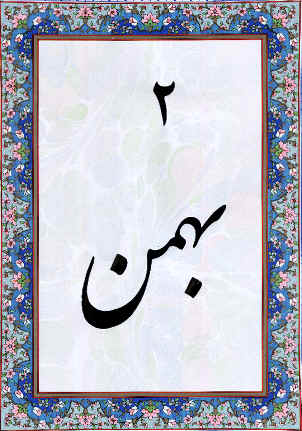 ۲
بهمن